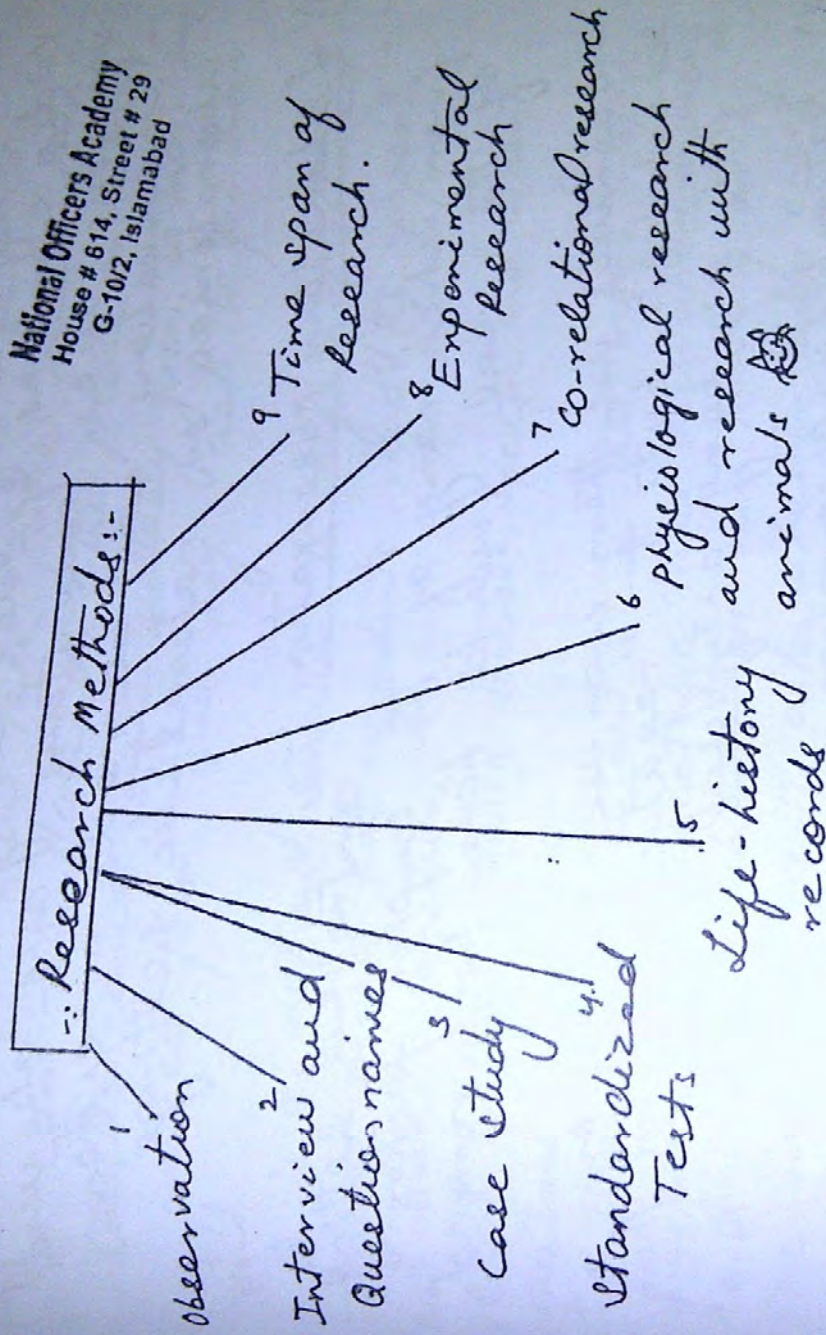 National Officers Academy
House # 614, Street # 29
G-10/2, Islamabad
-: Research Methods:-
1
Observation
2
Interview and
Questionnaires
3
Case study
4.
Standardized
Tests
5
Life-history
records
6
physiological research
and research with
animals
7
Co-relational research
8
Experimental
Research
9
Time span of
Research.